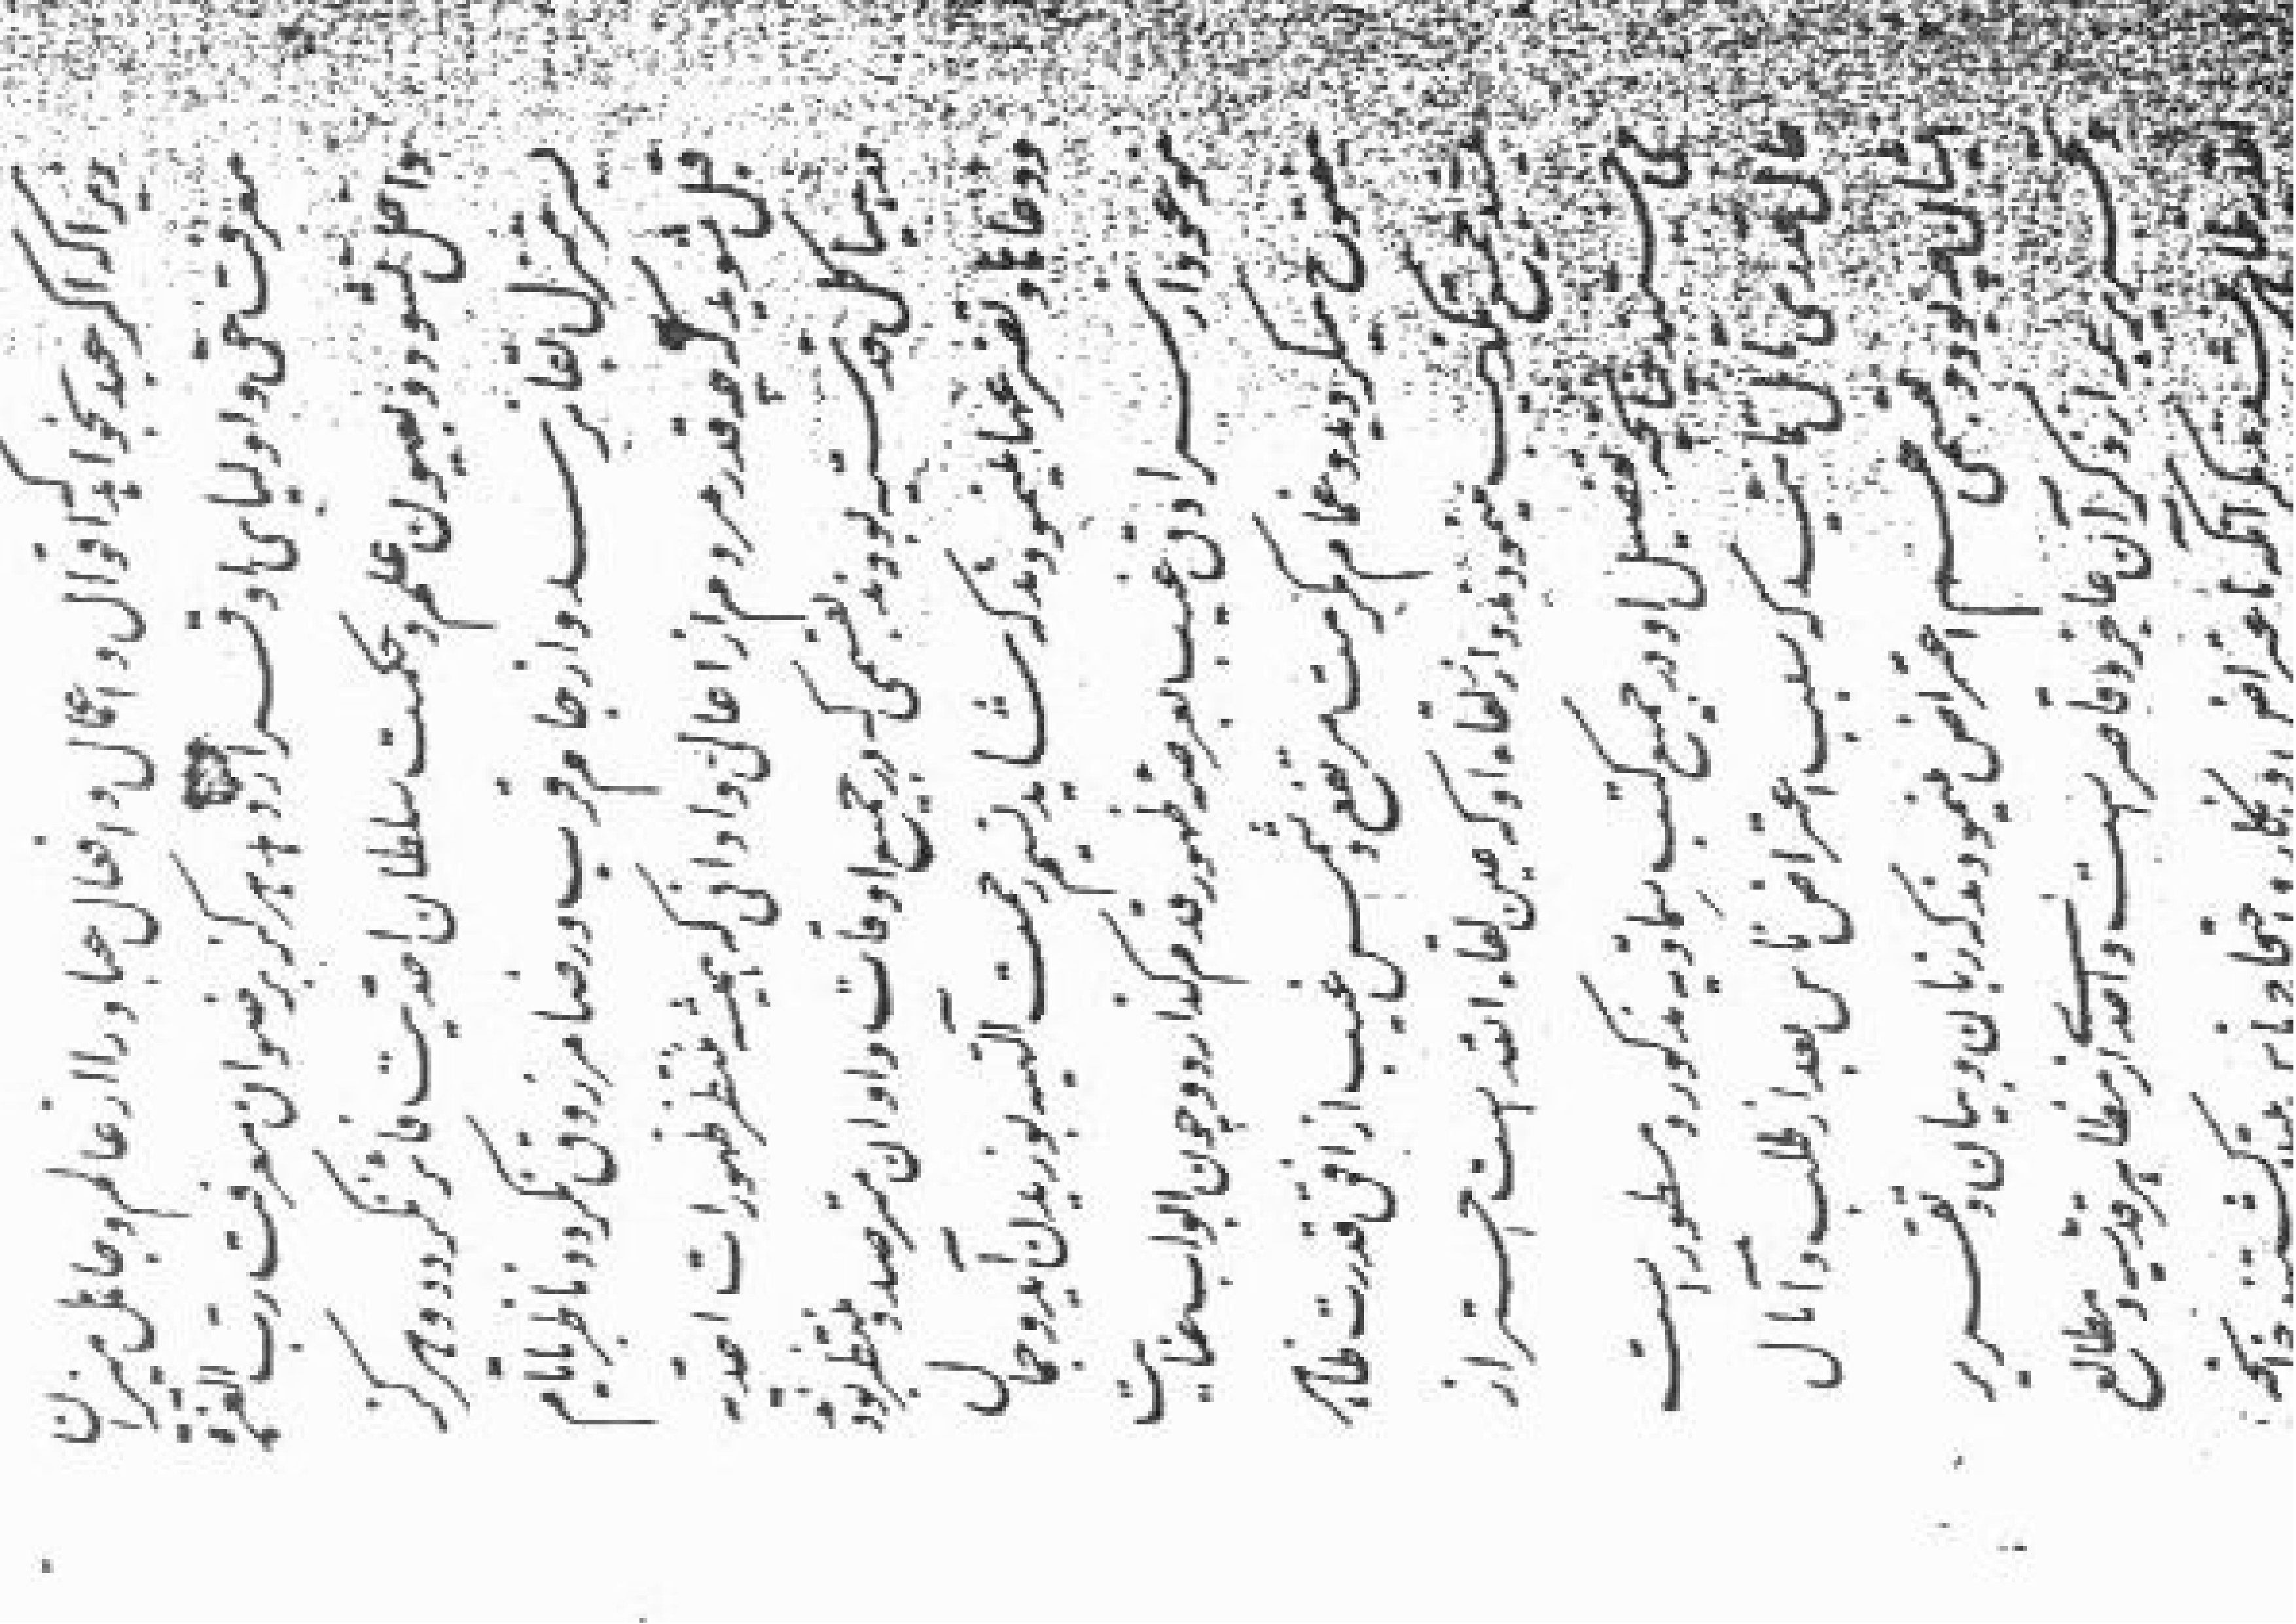 زیرا که اگر عبد بخواهد اقوال و اعمال و افعال عباد را از عالم و جاهل میزان
معرفت حق و اولیای او قرار دهد هرگز برضوان معرفت ربّ العزّة
داخل نشود و بعیون علم و حکمت سلطان احدیّت فائز نگردد و هرگز
بسرمنزل بقا نرسد و از جام قرب و رضا مرزوق نگردد ناظر بایّام
قبل شوید که چقدر مردم از اعالی و ادانی که همیشه منتظر ظهورات احدیّه
در هیاکل قدسیّه بوده‌اند بقسمیکه در جمیع اوقات و اوان مترصّد و منتظر بودند
و دعاها و تضرعها مینمودند که شاید نسیم رحمت الهیّه بوزیدن آید و جمال
موعود از سرادق غیب بعرصه ظهور قدم گذارد و چون ابواب عنایت
مفتوح میگردید و غمام مکرمت مرتفع و شمس غیب از افق قدرت ظاهر
میشد جمیع تکذیب مینمودند و از لقاء او که عین لقاء الله است احتراز
می جستند چنانچه تفصیل او در جمیع کتب سماویه مذکور و مسطور است
حال قدری تأمّل نمائید که سبب اعتراض ناس بعد از طلب و آمال
ایشان چه بود و بقسمی هم اعتراض مینمودند که زبان و بیان و تقریر
و تحریر همه از ذکر آن عاجز و قاصر است و احدی از مظاهر قدسیّه و مطالع
احدیّه ظاهر نشد مگر آنکه باعتراض و انکار و احتجاج ناس مبتلا گشت چنانچه